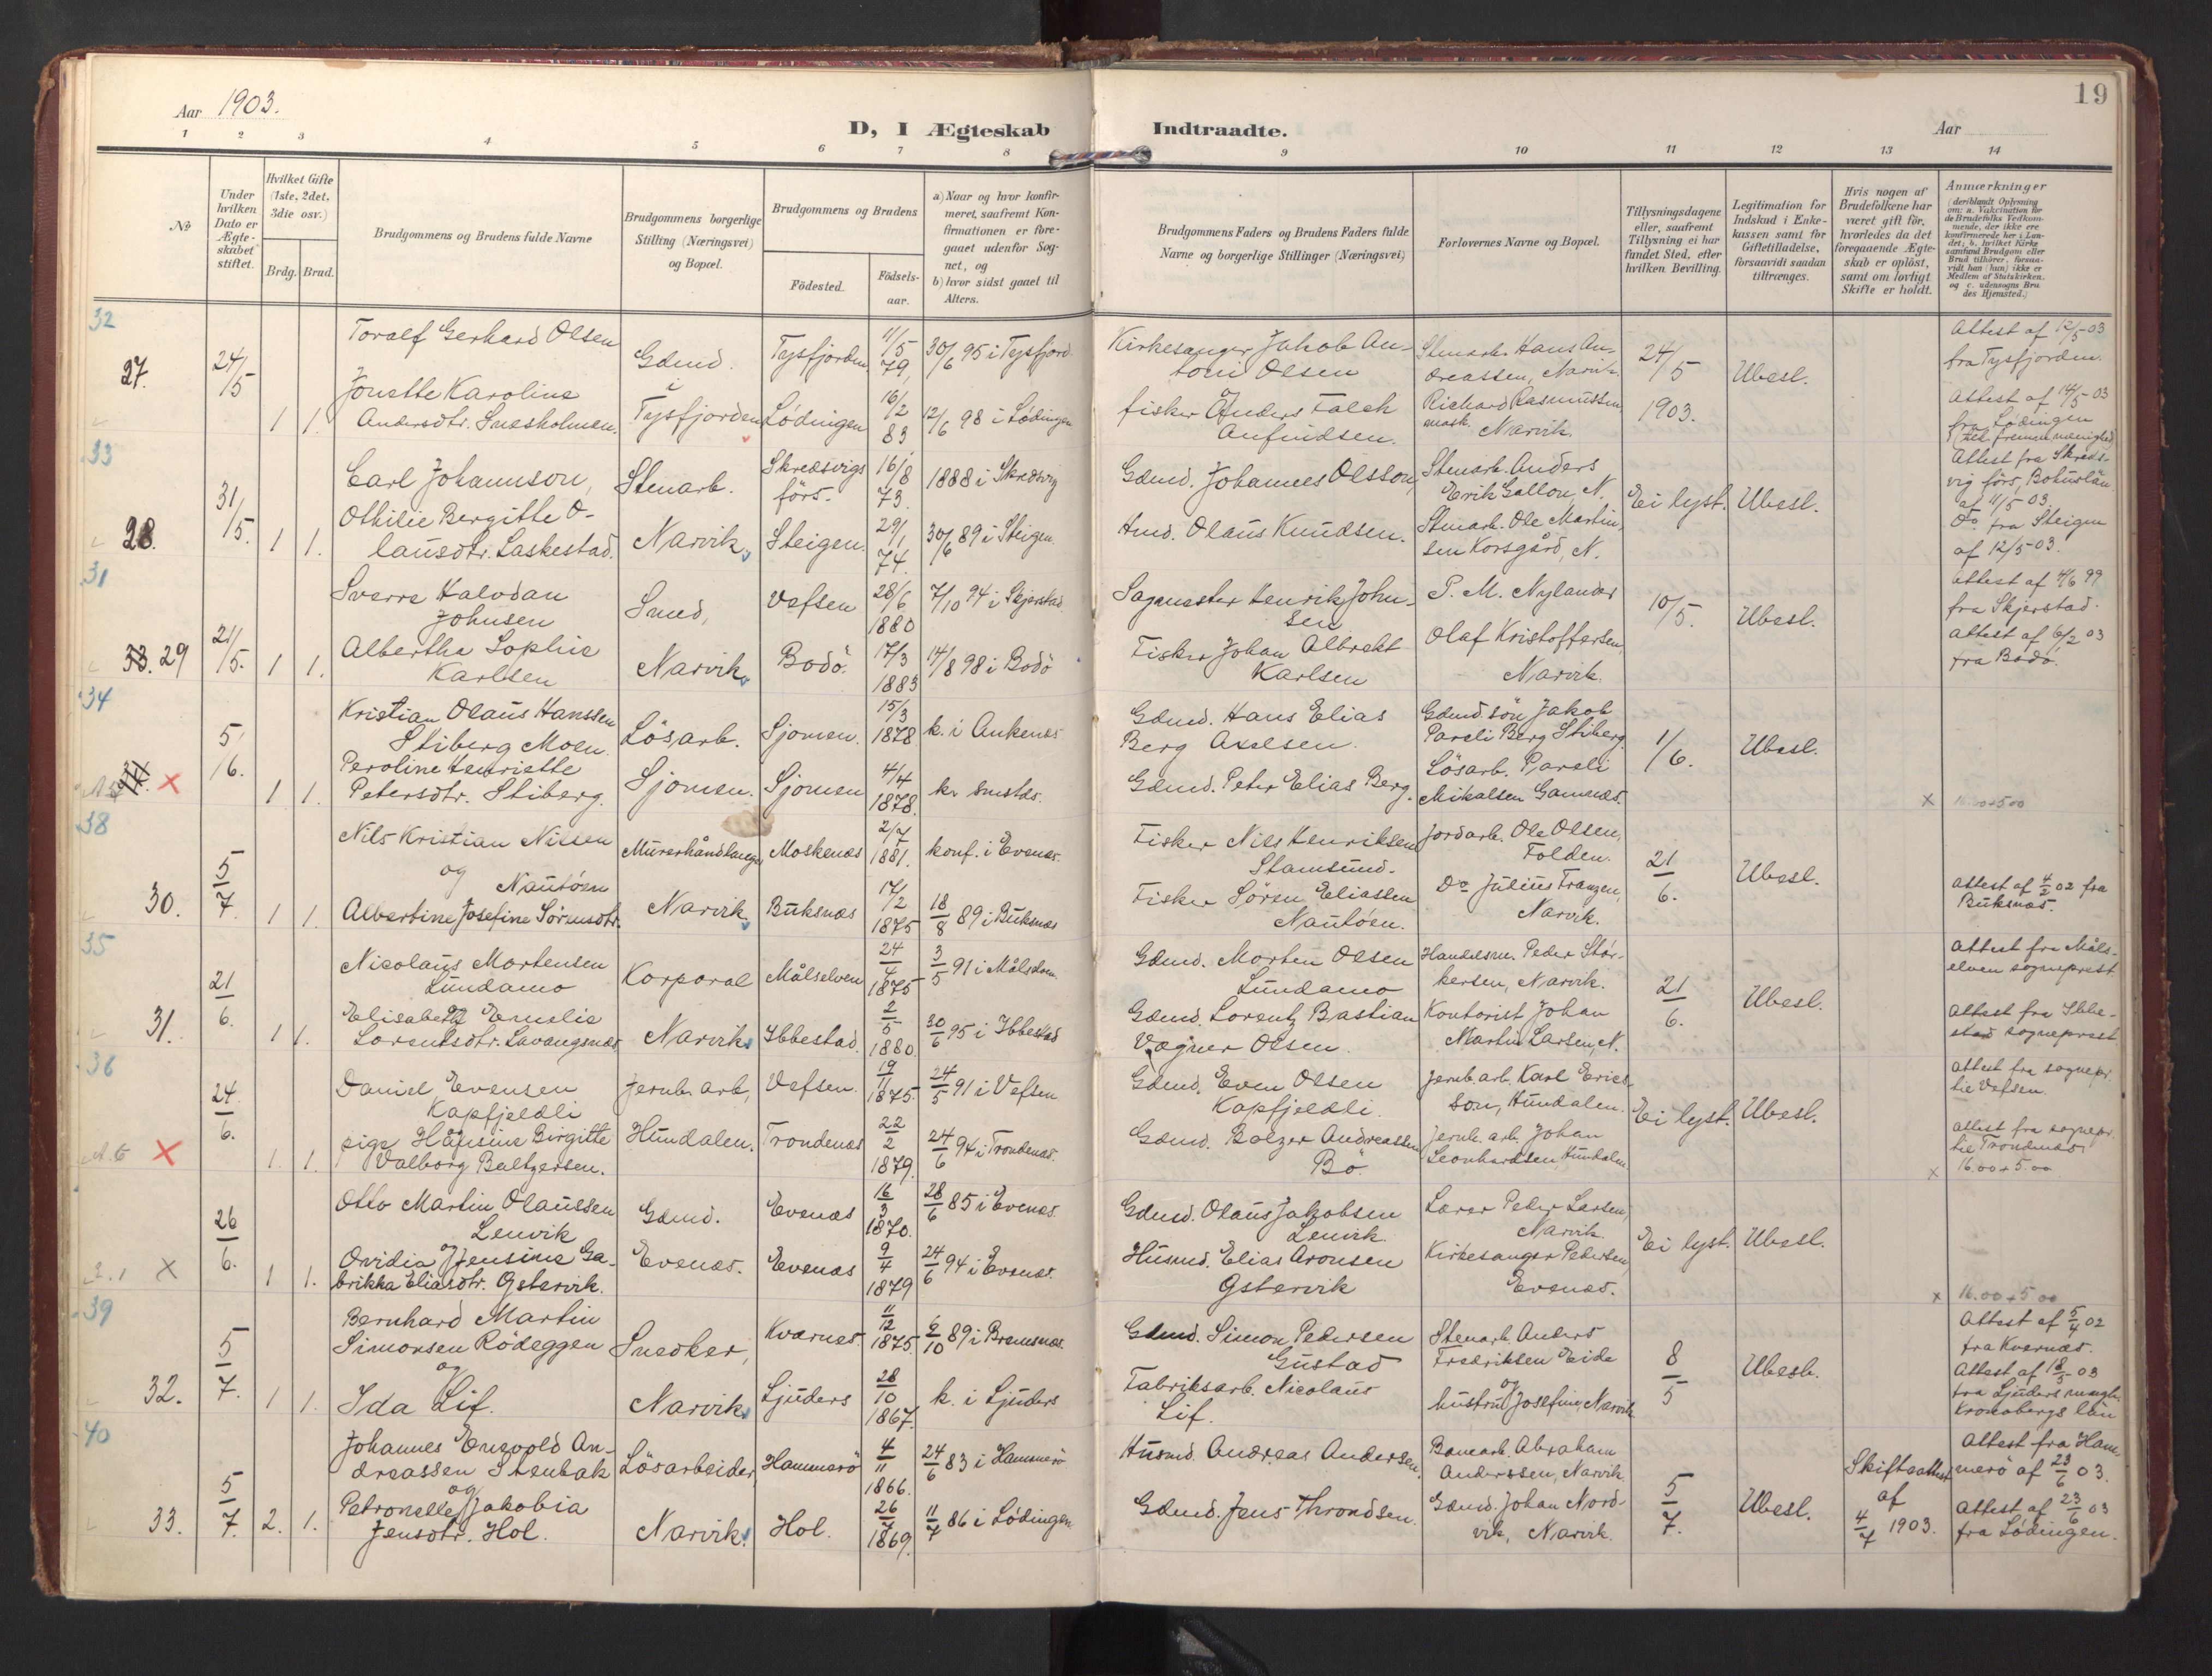 Aar 1903.
D, I Ægteskab Indtraadte.
Aar
19
1 2 3 4 5 6 7 8 9 10 11 12 13 14
No
Under hvilken Dato er Ægteskabet stiftet.
Hvilket Gifte (1ste, 2det, 3die osv.)
Brdg. Brud.
Brudgommens og Brudens fulde Navne
Brudgommens borgerlige Stilling (Næringsvei) og Bopæl.
Brudgommens og Brudens
Födested.
Födselsaar.
a) Naar og hvor konfirmeret, saafremt Konfirmationen er foregaaet udenfor Sognet, og
b) hvor sidst gaaet til Alters.
Brudgommens Faders og Brudens Faders fulde Navne og borgerlige Stillinger (Næringsvei)
Forlovernes Navne og Bopæl.
Tillysningsdagene eller, saafremt Tillysning ei har fundet Sted, efter hvilken Bevilling.
Legitimation for Indskud i Enkekassen samt for Giftetilladelse, forsaavidt saadan tiltrænges.
Hvis nogen af Brudefolkene har været gift för, hvorledes da det foregaaende Ægteskab er oplöst, samt om lovligt Skifte er holdt.
Anmærkninger (deriblandt Oplysning om: a. Vakcination for de Brudefolks Vedkommende, der ikke ere konfirmerede her i Landet, b. hvilket Kirkesamfund Brudgom eller Brud tilhörer, forsaavidt han (hun) ikke er Medlem af Statskirken, og c. udensogns Brudes Hjemsted.)
32
27. 24/5 1 1.
Toralf Gerhard Olsen
Jonette Karoline
Andersdtr. Snesholmen.
Gdmd. i Tysfjorden
Tysfjorden 11/5 79, 30/6 95 i Tysfjord.
Lödingen 16/2 83 12/6 98 i Lödingen
Kirkesanger Jakob Antoni Olsen
fisker Anders Falch Anfindsen.
Stenarb. Hans Andreassen, Narvik.
Richard Rasmussen mask. Narvik.
24/5 1903.
Ubesl.
Attest af 12/5-03
fra Tysfjorden.
Attest af 14/5 03
fra Lödingen
33
28. 31/5. 1 1.
Carl Johannson,
Othilie Bergitte Olausdtr. Laskestad.
Stenarb. Narvik
Skredsvigs förs. 16/8 73. 1888 i Skredsvig
Steigen. 29/1 74. 30/6 89 i Steigen.
Gdmd. Johannes Olsson,
Hmd. Olaus Knudsen.
Stenarb. Anders Erik Gallon, N.
Stenarb. Ole Martinsen Korsgård, N.
Ei lyst. Ubesl.
Attest fra Skredsvig förs, Bohuslän
af 11/5 03.
Do. fra Steigen
af 12/5-03.
31
33. 29 21/5. 1 1.
Sverre Halvdan Johnsen
Albertha Sophie Karlsen
Smed, Narvik
Vefsen 28/6 1880 7/10 94 i Skjerstad
Bodö. 17/3 1883 14/8 98 i Bodö
Sagmester Henrik Johnsen
Fisker Johan Albrekt Karlsen
P. M. Nylander
Olaf Kristoffersen, Narvik.
10/5. Ubesl.
Attest af 4/6 99
fra Skjerstad.
attest af 6/2 03
fra Bodö.
34
5/6. 1 1.
Kristian Olaus Hanssen Stiberg Moen.
Peroline Henriette Petersdtr. Stiberg.
Lösarb. Sjomen.
Sjomen. 15/3 1878 k. i Ankenæs
Sjomen 4/4 1878. k. smstds.
Gdmd. Hans Elias Berg Axelsen.
Gdmd. Peter Elias Berg.
Gdmd.sön Jakob Pareli Berg Stiberg
Lösarb. Pareli Mikalsen Gamnes.
1/6. Ubesl.
x 16.00+5.00
38
30. 5/7. 1 1.
Nils Kristian Nilsen
og
Nautöen
Albertine Josefine Sörensdtr.
Murerhåndlanger Narvik
Moskenæs 2/7 1881. konf. i Evenæs.
Buksnæs 17/2 1875 18/8 89 i Buksnæs
Fisker Nils Henriksen Stamsund.
Fisker Sören Eliassen Nautöen.
Jordarb. Ole Olsen, Folden.
Do Julius Franzen, Narvik.
21/6. Ubesl.
attest af 4/2 02 fra
Buksnæs.
35
31. 21/6. 1 1.
Nicolaus Mortensen Lundamo
Elisabeth Emelie
Lorentsdtr. Lavangsnæs
Korporal Narvik
Målselven 24/4 1875 3/5 91 i Målselven
Ibbestad 2/5 1880. 30/6 95 i Ibbestad
Gdmd. Morten Olsen Lundamo
Gdmd. Lorentz Bastian Vagner Olsen.
Handelsm. Peder Störkersen, Narvik.
Kontorist Johan Martin Larsen, N.
21/6. Ubesl.
attest fra Målselven sogneprest
attest fra Ibbestad sogneprest
36
24/6. 1. 1.
Daniel Evensen Kapfjeldli
pige Hansine Birgitte
Valborg Baltzersen.
Jernb. arb, Hundalen.
Vefsen. 19/11 1875. 24/5 91 i Vefsen
Trondenæs 22/2 1879. 24/6 94 i Trondenæs.
Gdmd. Even Olsen Kapfjeldli.
Gdmd. Balzer Andreassen Bö.
Jernb. arb. Karl Ericsson, Hundalen.
Jernb. arb. Johan Leonhardsen, Hundalen
Ei lyst. Ubesl.
attest fra sognepr.
til Vefsen.
attest fra sognepr.
til Trondenæs
x 16.00+5.00
26/6. 1 1.
Otto Martin Olaussen Lenvik
og
Ovidia Jensine Gabrikka Eliasdtr. Østervik.
Gdmd. Evenæs.
Evenæs 16/3 1870. 28/6 85 i Evenæs.
Evenæs 9/4 1879 24/6 94 i Evenæs.
Gdmd. Olaus Jakobsen Lenvik.
Husmd. Elias Aronsen Østervik
Lærer Peder Larsen, Narvik.
Kirkesanger Pedersen, Evenæs.
Ei lyst. Ubesl.
x 16.00+5.00
39
32. 5/7. 1 1.
Bernhard Martin
Simonsen Rödeggen
og
Ida Lif.
Snedker, Narvik
Kværnes. 11/12 1875. 6/10 89 i Bremsnæs.
Ljuders 28/10 1867. k. i Ljuders
Gdmd. Simon Pedersen Gustad
Fabriksarb. Nicolaus Lif.
Stenarb. Anders Fredriksen Eide
og hustru Josefine, Narvik
8/5 Ubesl.
Attest af 5/4 02
fra Kvernæs.
Attest af 18/5 03
fra Ljuders
Kronobergs län
40
33. 5/7. 2. 1.
Johannes Engvold Andreassen Stenbak
og
Petronelle Jakobia
Jensdtr. Hol.
Lösarbeider, Narvik.
Hammerö 4/11 1866. 24/6 83 i Hammerö
Hol. 26/7 1869. 11/7 86 i Lödingen
Husmd. Andreas Andersen.
Gdmd. Jens Throndsen.
Banearb. Abraham Anderssen, Narvik.
Gdmd. Johan Nordvik, Narvik.
5/7. Ubesl.
Skifteattest af 4/7 1903.
Attest fra Hammerö af 23/6 03.
Attest af 23/6 03
fra Lödingen.